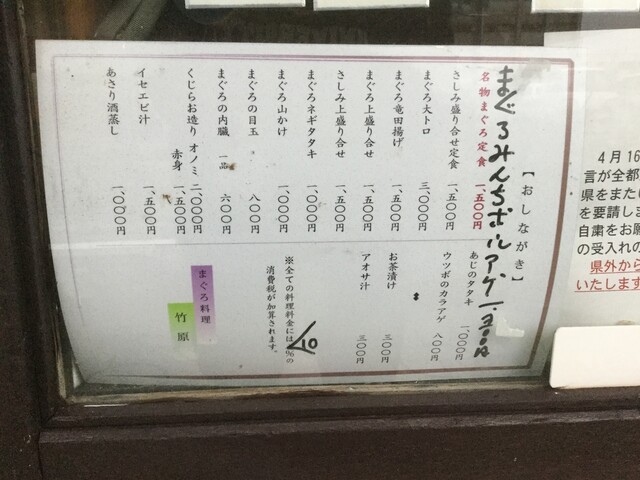 【おしながき】
まぐろみんちボールアゲ 一、三〇〇円
名物まぐろ定食 一、五〇〇円
さしみ盛り合せ定食 一、五〇〇円
まぐろ大トロ 三、〇〇〇円
まぐろ竜田揚げ 一、五〇〇円
まぐろ上盛り合せ 一、五〇〇円
さしみ上盛り合せ 一、五〇〇円
まぐろネギタタキ 一、〇〇〇円
まぐろ山かけ 一、〇〇〇円
まぐろの目玉 八〇〇円
まぐろの内臓 一品 六〇〇円
くじらお造り オノミ 二、〇〇〇円
赤身 一、五〇〇円
イセエビ汁 一、五〇〇円
あさり酒蒸し 一、〇〇〇円
あじのタタキ 一、〇〇〇円
ウツボのカラアゲ 八〇〇円
お茶漬け 三〇〇円
アオサ汁 三〇〇円
※全ての料理料金には10%の
消費税が加算されます。
まぐろ料理
竹原
4月16
言が全都
県をまた
を要請しま
自粛をお願
の受入れの
県外から
いたします